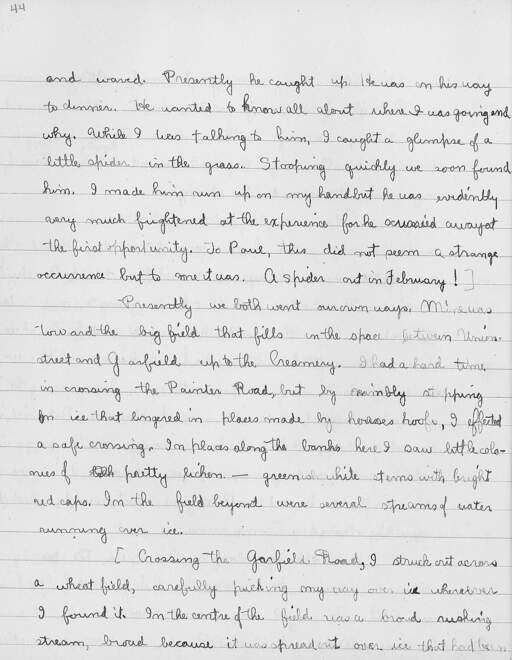 44
and waved. Presently he caught up. He was on his way
to dinner. He wanted to know all about where I was going and
why. While I was talking to him, I caught a glimpse of a
little spider in the grass. Stooping quickly we soon found
him. I made him run up on my hand but he was evidently
very much frightened at the experience for he away at
the first opportunity. To Paul, this did not seem a strange
occurrence but to me it was. A spider out in February!]
Presently we both went our own ways. Mine was
toward the big field that fills in the space between Union
street and Garfield up to the Creamery. I had a hard time
in crossing the Painter Road, but by stepping
on ice that lingered in places made by horses hoofs, I effected
a safe crossing. In places along the banks here I saw little colo-
nies of pretty lichen — greenish white stems with bright
red caps. In the field beyond were several streams of water
running over ice.
[ Crossing the Garfield Road, I struck out across
a wheat field, carefully picking my way over ice wherever
I found it. In the centre of the field was a broad rushing
stream, broad because it was spread out over ice that had been